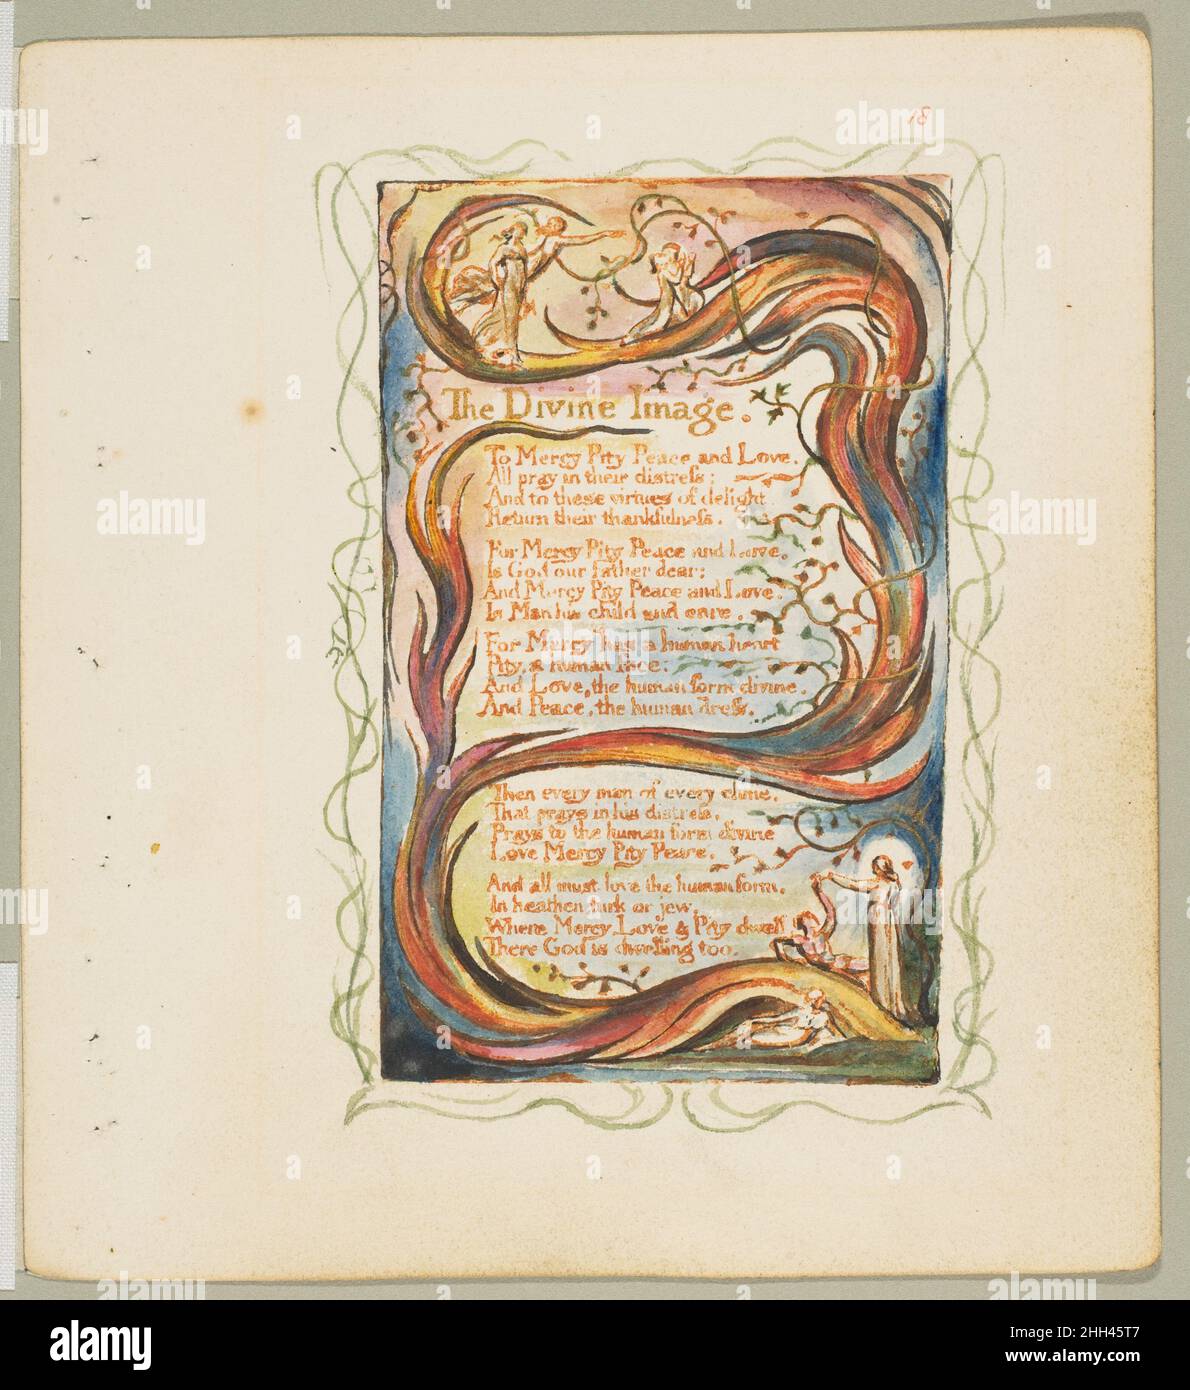 18
The Divine Image.
To Mercy Pity Peace and Love,
All pray in their distress:
And to these virtues of delight
Return their thankfulness.
For Mercy Pity Peace and Love,
Is God our father dear:
And Mercy Pity Peace and Love,
Is Man his child and care.
For Mercy has a human heart
Pity, a human face:
And Love, the human form divine,
And Peace, the human dress.
Then every man of every clime,
That prays in his distress,
Prays to the human form divine
Love Mercy Pity Peace.
And all must love the human form,
In heathen, turk or jew,
Where Mercy, Love & Pity dwell
There God is dwelling too.
alamy
Image ID: 2HH45T7
www.alamy.com